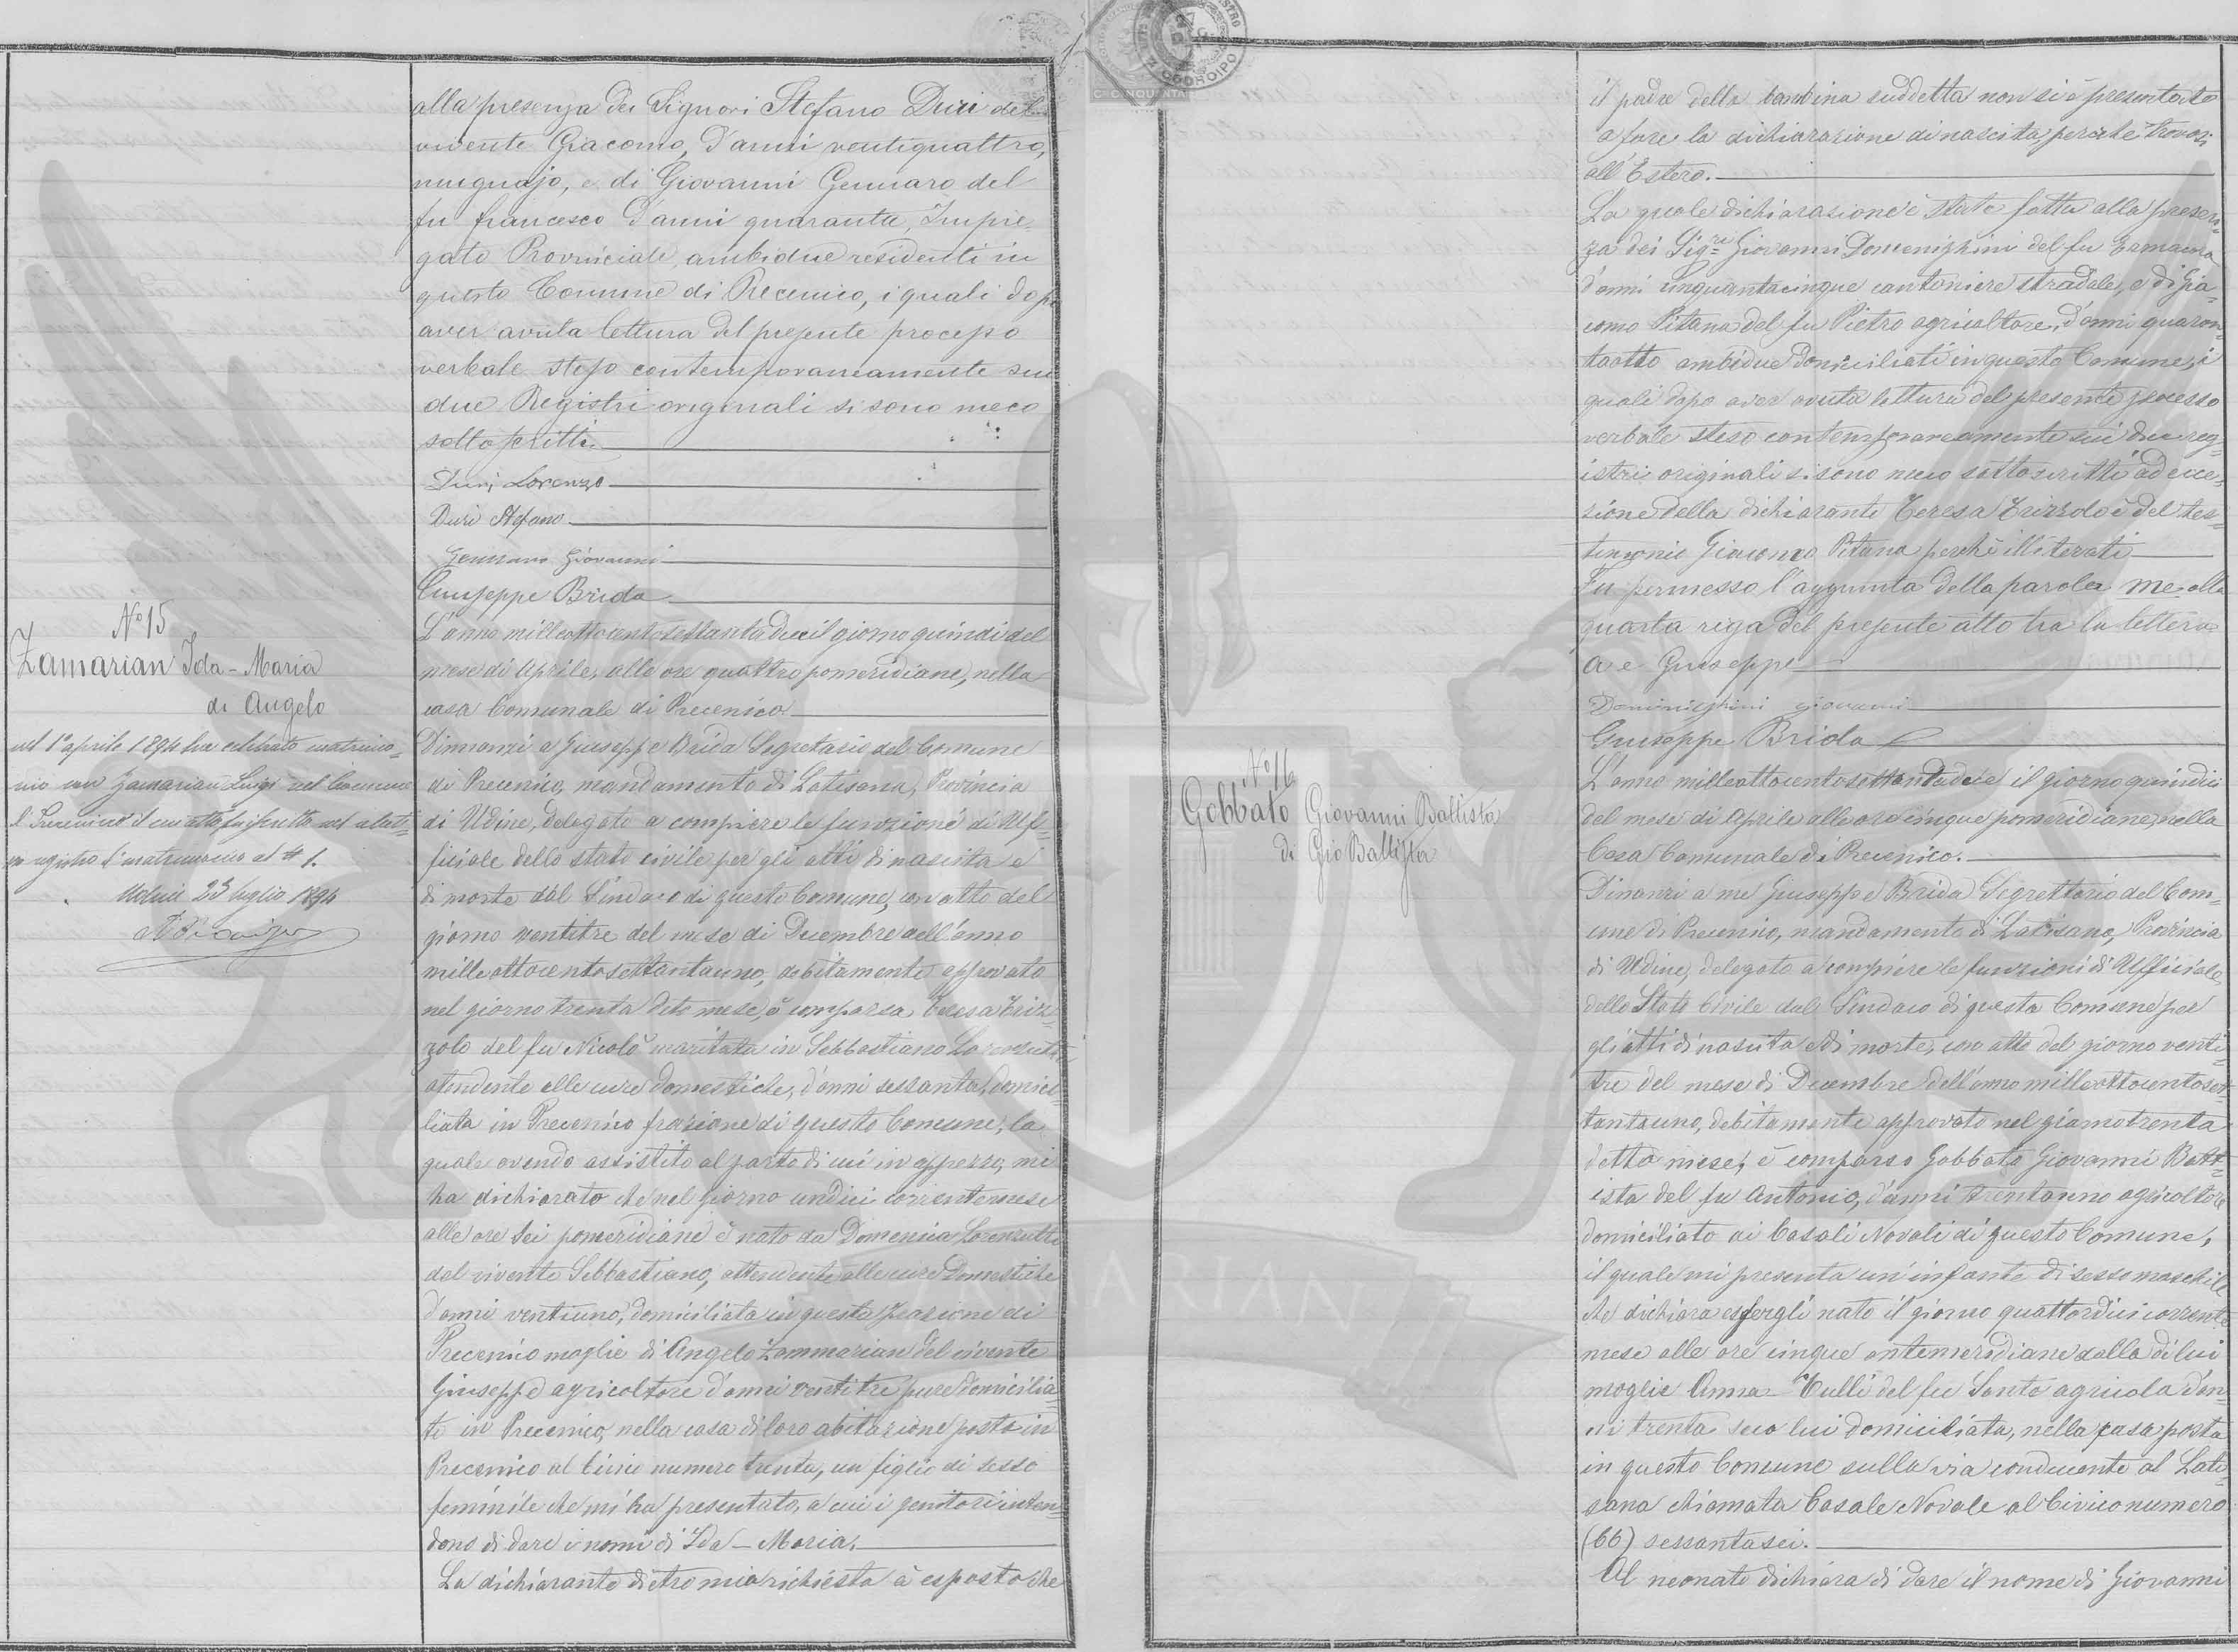 alla presenza dei Signori Stefano Duri del
vivente Giacomo, d'anni ventiquattro,
mugnajo, e di Giovanni Gennaro del
fu francesco d'anni quaranta, Impie-
gato Provinciale, ambidue residenti in
questo Comune di Precenico, i quali dopo
aver avuta lettura del presente processo
verbale steso contemporaneamente sui
due Registri originali si sono meco
sottoscritti.
Duri Lorenzo
Duri Stefano
Gennaro Giovanni
Giuseppe Brida
No 15
Zamarian Ida - Maria
di Angelo
nel 1° aprile 1894 ha celebrato matrimo-
nio con Zamarian Luigi nel Comune
di Precenico il cui atto fu iscritto nel
registro di matrimonio al # 1.
Udine 23 luglio 1894
L'anno milleottocentosettantadue il giorno quindi del
mese di Aprile, alle ore quattro pomeridiane, nella
casa Comunale di Precenico.
Dinnanzi a Giuseppe Brida Segretario del Comune
di Precenico, mandamento di Latisana, Provincia
di Udine, delegato a compiere le funzione di Uf-
ficiale dello stato civile per gli atti di nascita e
di morte dal Sindaco di questo Comune, con atto del
giorno ventitre del mese di Decembre dell'anno
milleottocentosettantauno, debitamente approvato
nel giorno trenta deto mese, è comparsa Teresa Triz-
zolo del fu Nicolò maritata in Sebbastiano Lorenzutti
atendente alle cure domestiche, d'anni sessanta, domici-
liata in Precenico frazione di questo Comune, la
quale avendo assistito al parto di cui in appezzo, mi
ha dichiarato che nel giorno undici corrente mese
alle ore sei pomeridiane è nato da Domenica Lorenzutti
del vivente Sebbastiano, attendente alle cure Domestiche
d'anni ventiuno, domiciliata in questa frazione di
Precenico moglie di Angelo Zammarian del vivente
Giuseppe agricoltore d'anni ventitre pure domicilia-
to in Precenico, nella casa di loro abitazione posta in
Precenico al Civico numero trenta, un figlio di sesso
feminile che mi ha presentato, a cui i genitori inten-
dono di dare i nomi di Ida - Maria.
La dichiarante dietro mia richiesta à esposto che
il padre della bambina suddetta non si è presentato
a fare la dichiarazione di nascita, perchè trovasi
all'Estero.
La quale dichiarazione è stata fatta alla presen-
za dei Sig.ri Giovanni Domenighini del fu
d'anni cinquantacinque cantoniere stradale, e di Gia-
como Pitana del fu Pietro agricoltore, d'anni quaran-
taotto ambidue domiciliati in questo Comune, i
quali dopo aver avuta lettura del presente processo
verbale steso contemporaneamente sui due reg-
istri originali si sono meco sottoscritti ad ecce-
zione della dichiarante Teresa Trizzolo e del tes-
timonio Giacomo Pitana perchè illiterati
Fu permesso l'aggiunta della parola me alla
quarta riga del presente atto tra la lettera
a e Giuseppe
Dominighini giovanni
Giuseppe Brida
No 16
Gobbato Giovanni Battista
di Gio Battista
L'anno milleottocentosettantadue il giorno quindici
del mese di Aprile alle ore cinque pomeridiane, nella
Casa Comunale di Precenico.
Dinanzi a me Giuseppe Brida Segrettario del Com-
une di Precenico, mandamento di Latisana, Provincia
di Udine, delegato a compire le funzioni di Ufficiale
dello Stato Civile dal Sindaco di questa Comune per
gli atti di nascita e di morte, con atto del giorno venti-
tre del mese di Decembre dell'anno milleottocentoset-
tantauno, debitamente approvato nel giorno trenta
detto mese, è comparso Gobbato Giovanni Batt-
ista del fu Antonio, d'anni trentanno agricoltore
domiciliato ai Casali Novali di questo Comune,
il quale mi presenta un'infante di sesso maschile
che dichiara essergli nato il giorno quattordici corrente
mese alle ore cinque antemeridiane dalla di lui
moglie Anna Tulli del fu Santo agricola d'an-
ni trenta seco lui domiciliata, nella casa posta
in questo Comune sulla via conducente al Lati-
sana chiamata Casale Novale al Civico numero
(66) sessantasei.
Al neonato dichiara di dare il nome di Giovanni